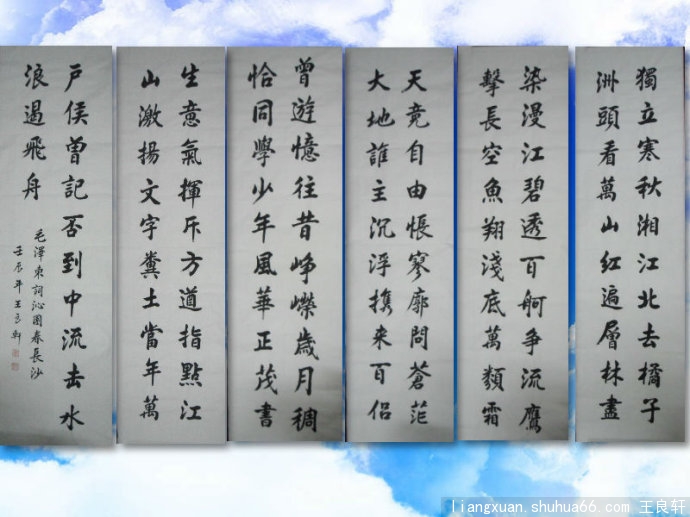 獨立寒秋湘江北去橘子
洲頭看萬山紅遍層林盡
染漫江碧透百舸争流鷹
擊長空魚翔淺底萬類霜
天竞自由悵寥廓問蒼茫
大地誰主沉浮携来百侣
曾遊憶往昔峥嶸歲月稠
恰同學少年風華正茂書
生意氣揮斥方遒指點江
山激揚文字糞土當年萬
户侯曾記否到中流击水
浪遏飛舟
毛澤東詞沁園春長沙
壬辰年王良軒
liangxuan.shuhua66.com 王良轩